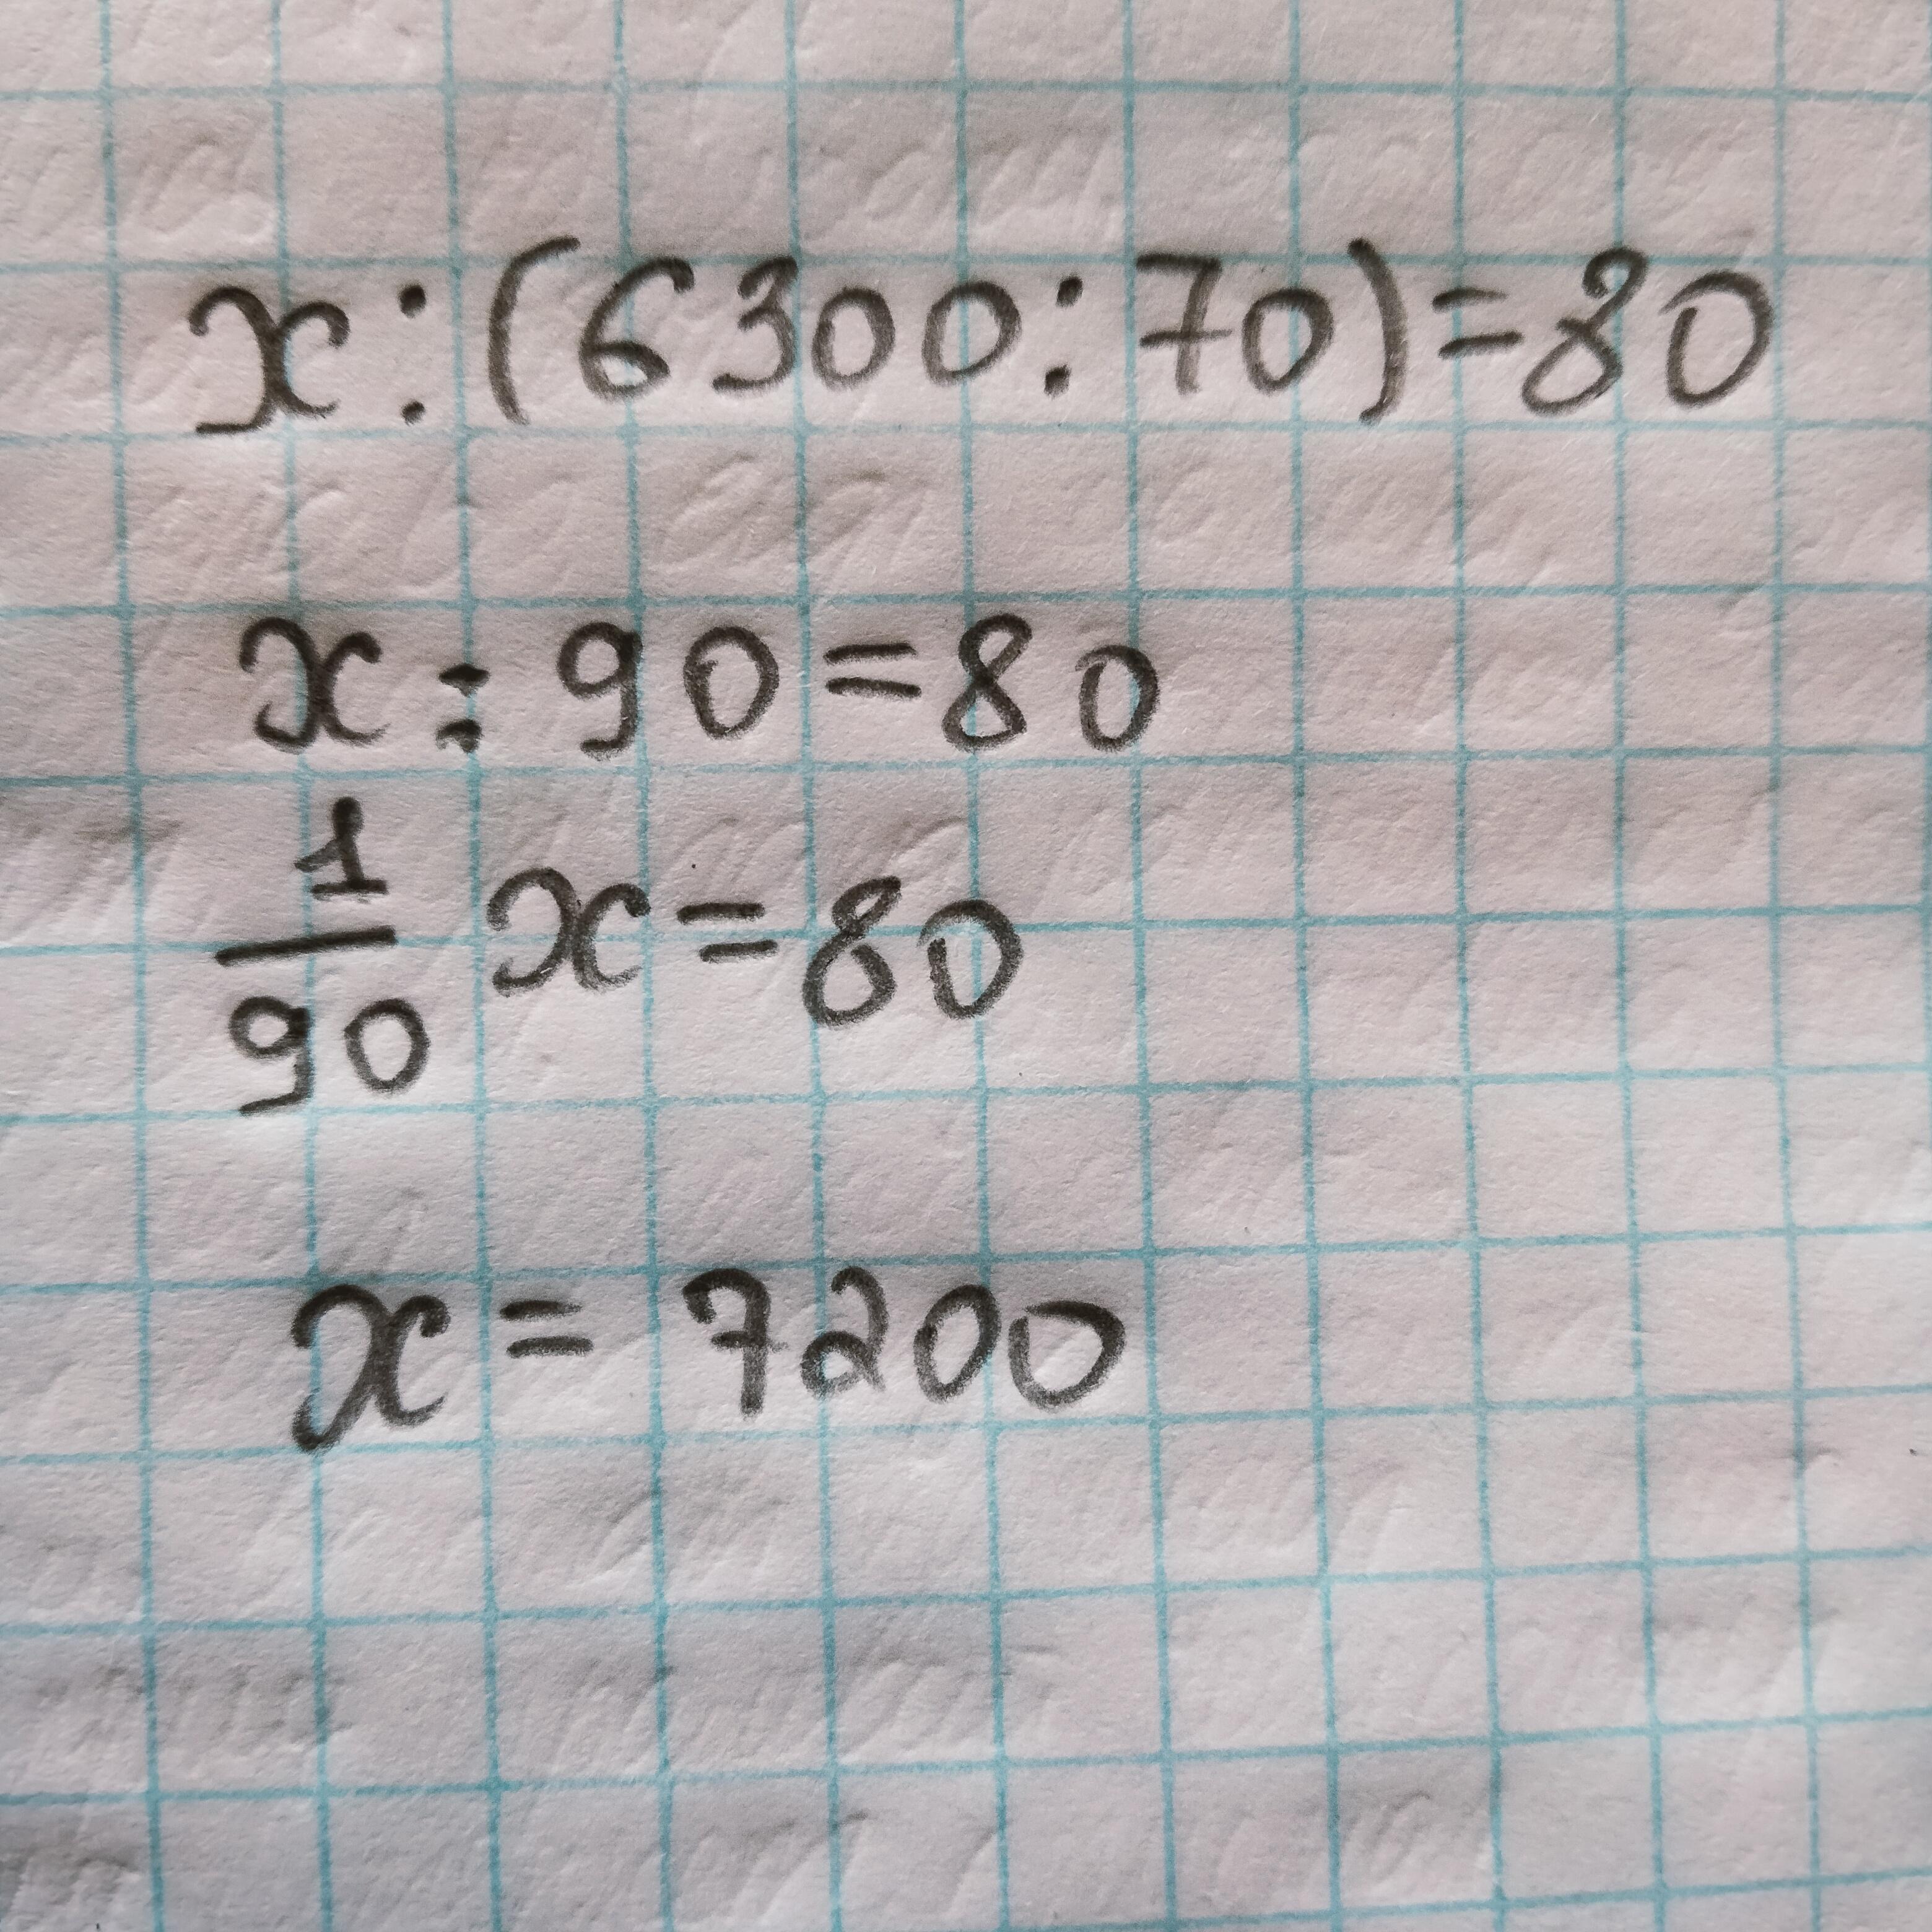 x:(6300:70)=80
x:90=80
1/90 x=80
x=7200